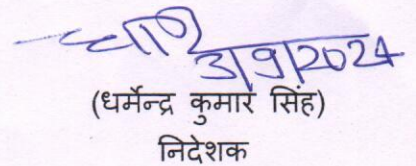 3/9/2024
(धर्मेन्द्र कुमार सिंह)
निदेशक